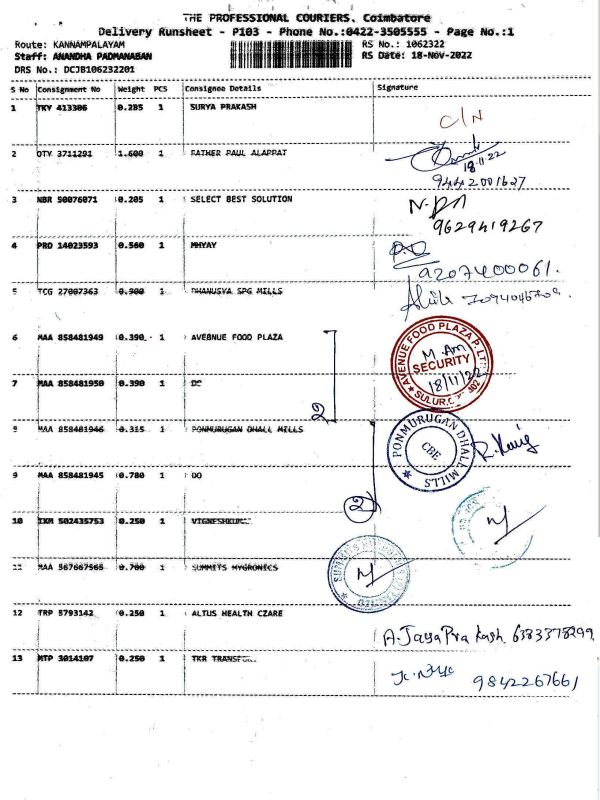 THE PROFESSIONAL COURIERS, Coimbatore
Delivery Runsheet - P103 - Phone No.:0422-3505555 - Page No.:1
Route: KANNAMPALAYAM RS No.: 1062322
Staff: ANANDHA PADMANABAN RS Date: 18-Nov-2022
DRS No.: DCJB106232201
S No Consignment No Weight PCS Consignee Details Signature
1 TKV 413306 0.285 1 SURYA PRAKASH C/N
2 OTY 3711291 1.600 1 FATHER PAUL ALAPPAT 18.11.22
9442001627
3 NBR 50076071 0.205 1 SELECT BEST SOLUTION
9629419267
4 PRO 14023593 0.560 1 MHYAY
9207400061.
5 TCG 27007363 0.900 1 DHANUSYA SPG MILLS
6 MAA 858481949 0.390 1 AVEBNUE FOOD PLAZA
AVENUE FOOD PLAZA P. LTD
SECURITY
18/11/22
7 MAA 858481950 0.390 1 DO
2
8 MAA 858481946 0.315 1 PONMURUGAN DHALL MILLS
PONMURUGAN DHALL MILLS
CBE
9 MAA 858481945 0.780 1 DO
2
10 IXM 502435753 0.250 1
11 MAA 567667565 0.700 1 SUMMITS HYGRONICS
12 TRP 5793142 0.250 1 ALTUS HEALTH CZARE
A. Jaya Prakash 6383378299
13 MTP 3014107 0.250 1 TKR
9842267661